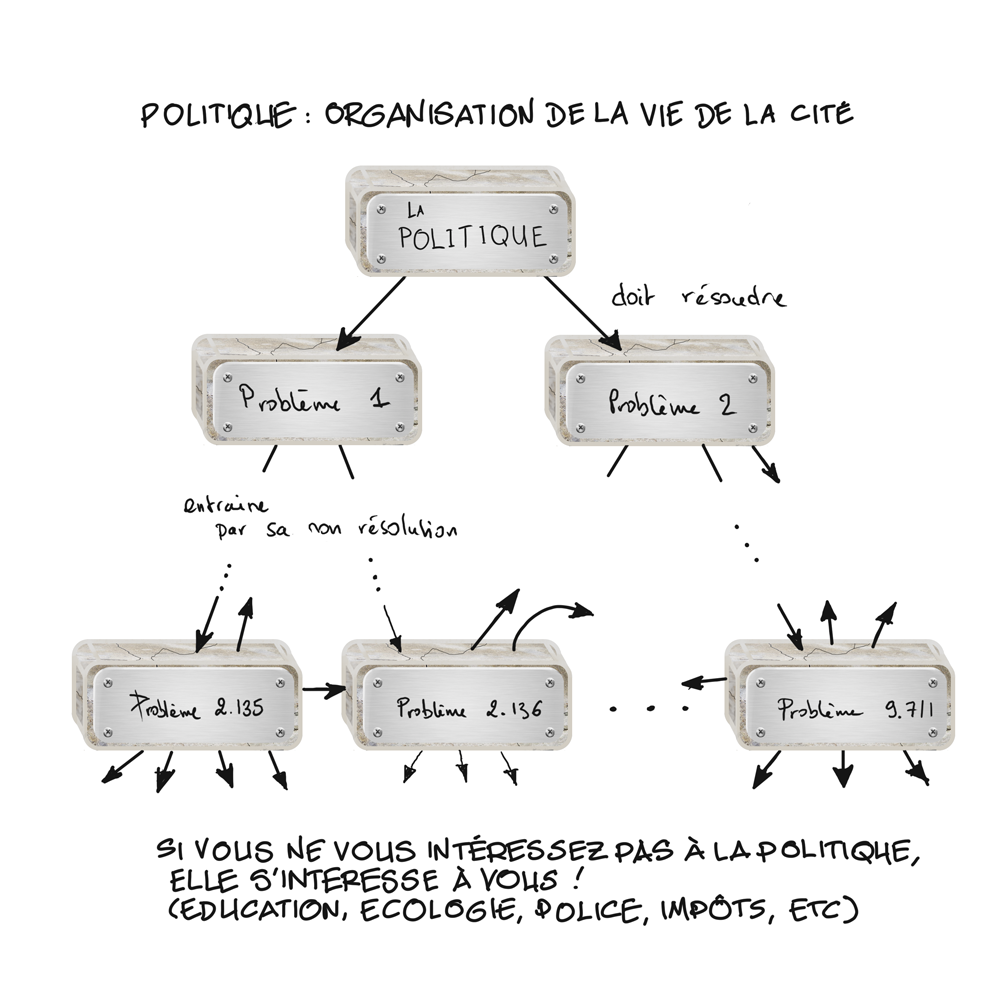 POLITIQUE : ORGANISATION DE LA VIE DE LA CITÉ
LA
POLITIQUE
doit résoudre
Problème 1
Problème 2
entraine
par sa non résolution
Problème 2.135
Problème 2.136
Problème 9.711
SI VOUS NE VOUS INTÉRESSEZ PAS À LA POLITIQUE,
ELLE S'INTERESSE À VOUS !
(EDUCATION, ECOLOGIE, POLICE, IMPÔTS, ETC)